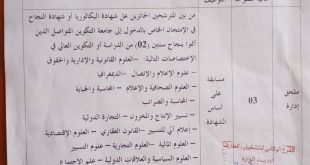 من بين المترشحين الحائزين على شهادة البكالوريا أو شهادة النجاح
في الإمتحان الخاص بالدخول إلى جامعة التكوين المتواصل الذين
أتموا بنجاح سنتين (02) من الدراسة أو التكوين العالي في
الإختصاصات التالية: -العلوم القانونية والإدارية والحقوق
- علوم الإعلام والإتصال -الديمغرافيا
- العلوم الصحافية والإعلام - المحاسبة والجباية
- المحاسبة والضرائب
- تسيير الإنتاج والمخزون - التجارة الدولية
- إعلام آلي للتسيير - القانون العقاري - العلوم الإقتصادية
- التجارة الدولية - العلوم المالية - علوم التسيير
- العلوم السياسية والعلاقات الدولية - علم الإجتماع
ملحق
إدارة
03
مسابقة
على
أساس
الشهادة